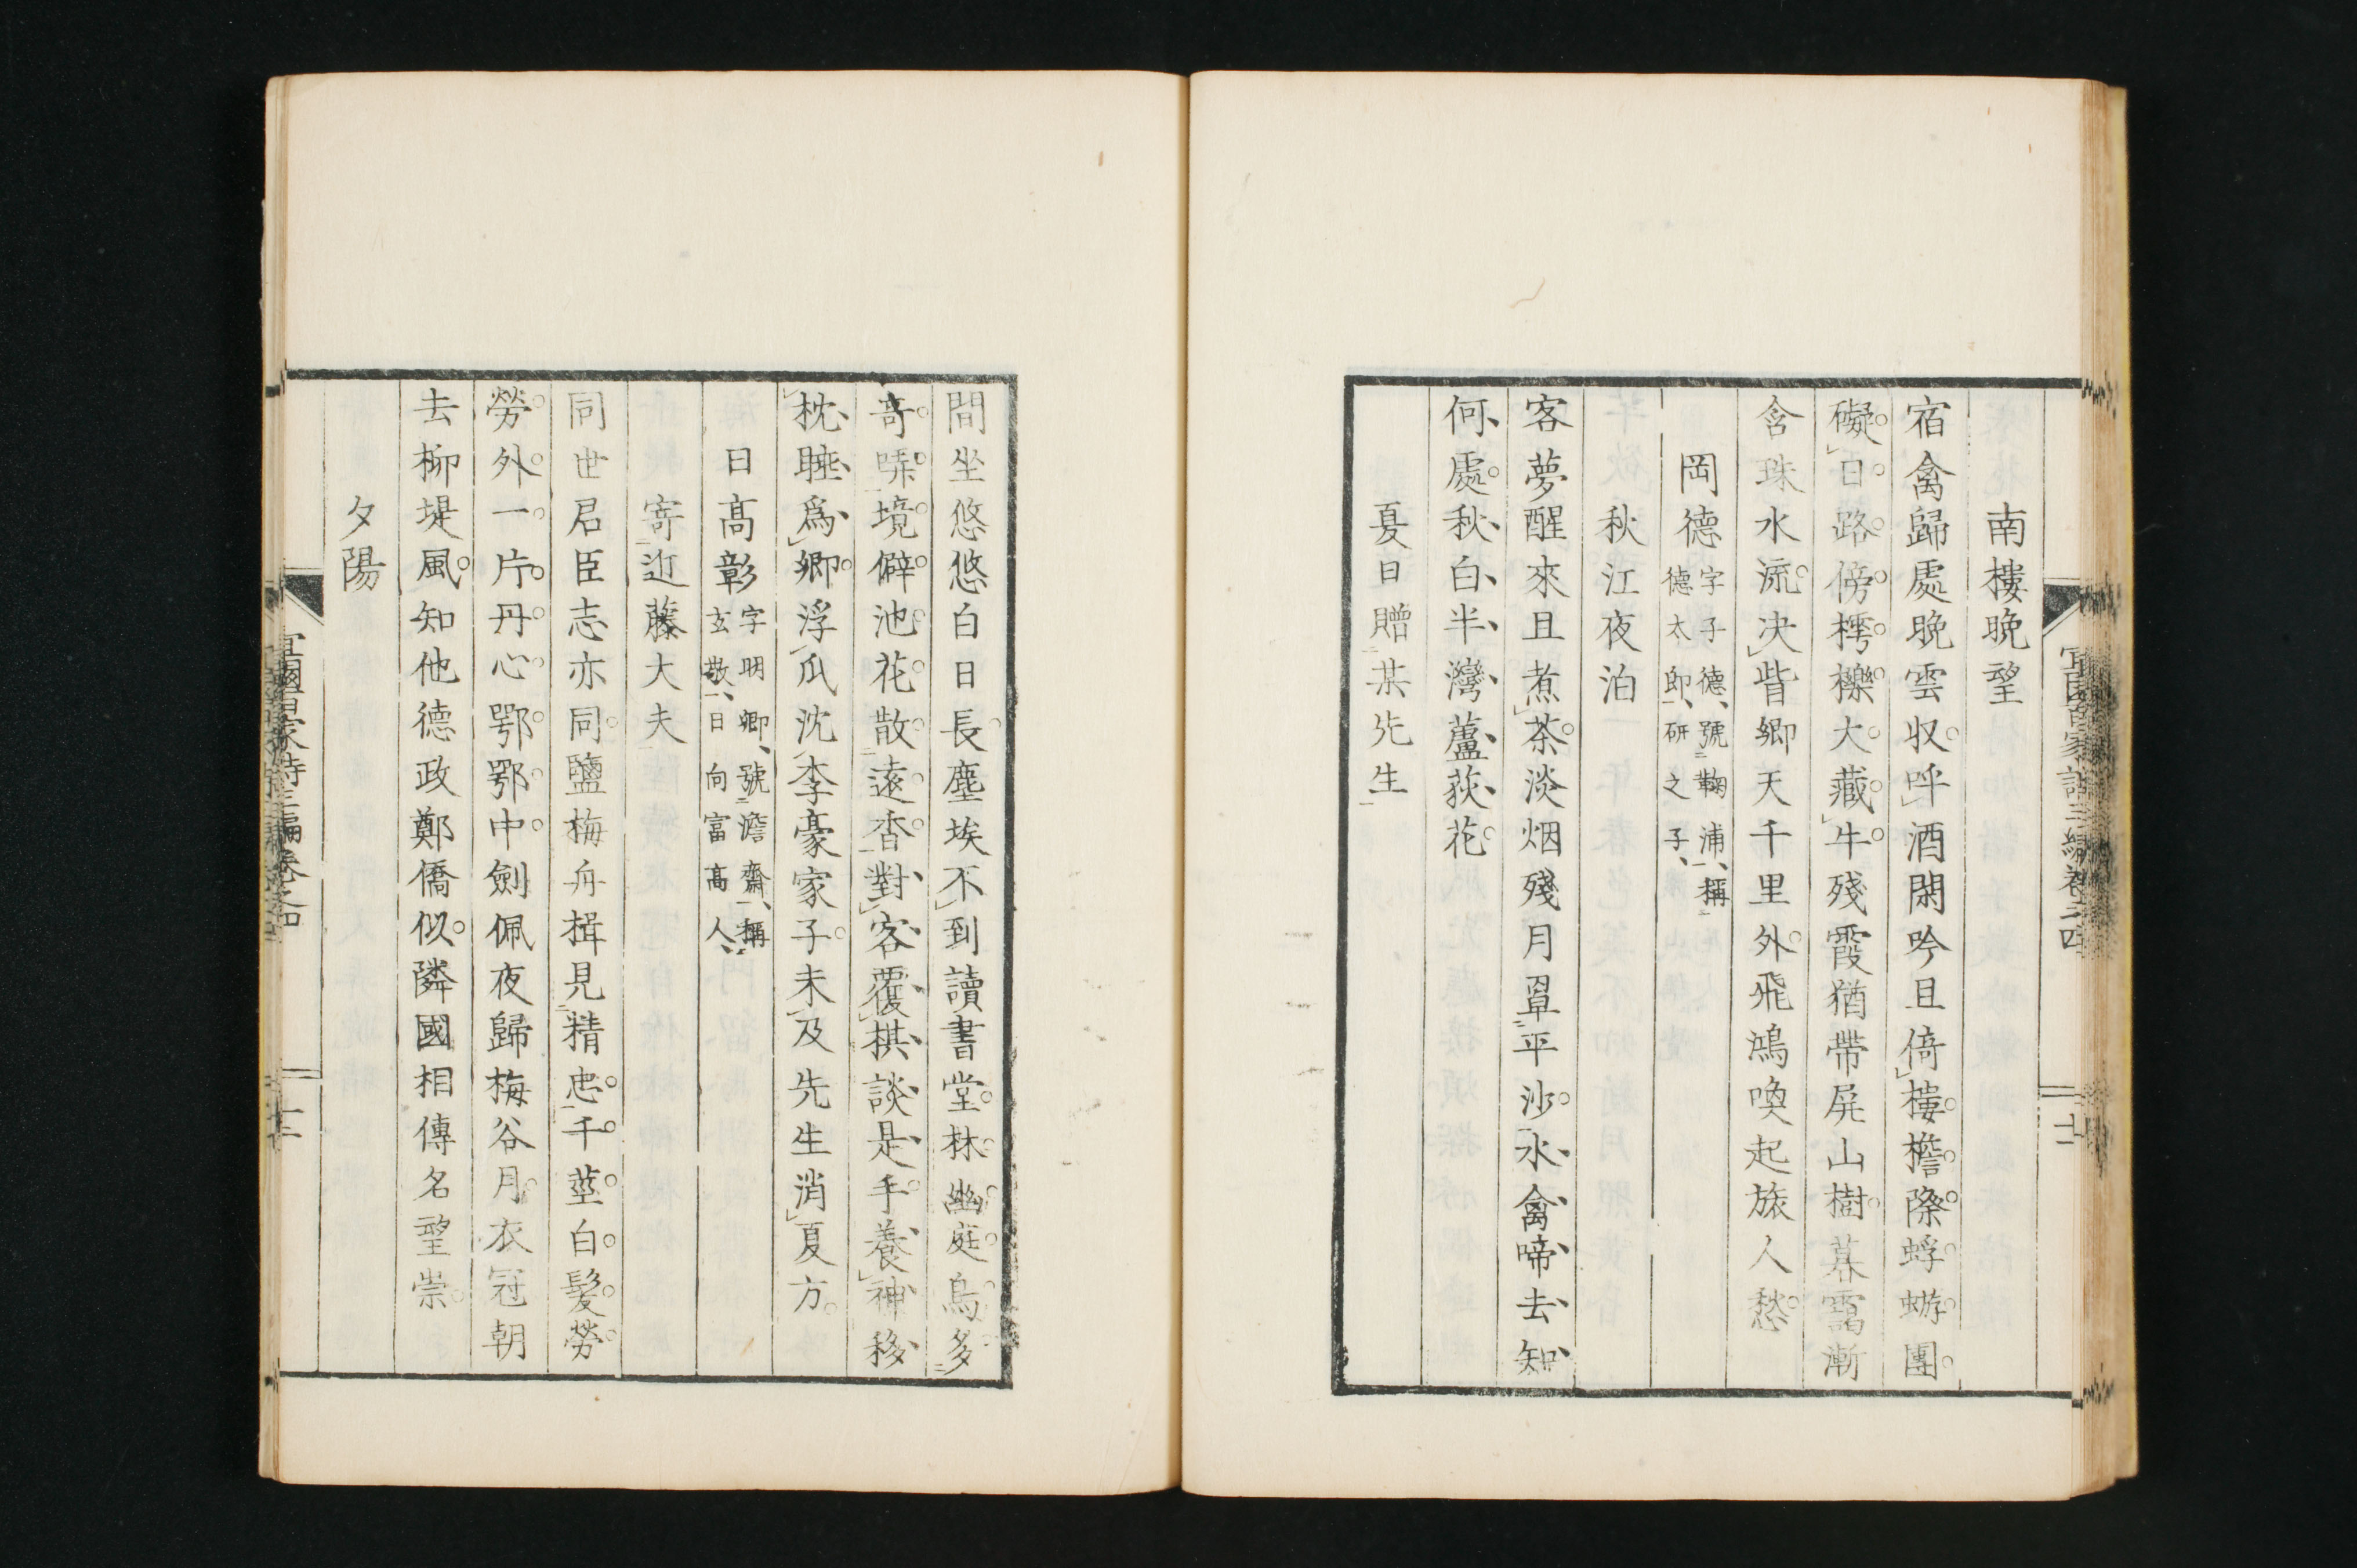 南樓晩望
宿禽歸處晩雲収呼酒閑吟且倚樓檐際蜉蝣團
礙日路傍樗櫟大藏牛殘霞猶帶屏山樹暮靄漸
含珠水流决眥鄉天千里外飛鴻喚起旅人愁
岡德字子德、號鞠浦、稱
德太郎、研之子、
秋江夜泊
客夢醒來且煮茶淡烟殘月罩平沙水禽啼去知
何處秋白半灣蘆荻花
夏日贈某先生
間坐悠悠白日長塵埃不到讀書堂林幽庭鳥多
奇哢境僻池花散遠香對客覆棋談是手養神移
枕睡爲鄉浮瓜沈李豪家子未及先生消夏方
日高彰字明卿、號澹齋、稱
玄敬、日向富高人、
寄近藤大夫
同世君臣志亦同鹽梅舟揖見精忠千莖白髮勞
勞外一片丹心鄂鄂中劍佩夜歸梅谷月衣冠朝
去柳堤風知他德政鄭僑似隣國相傳名望崇
夕陽